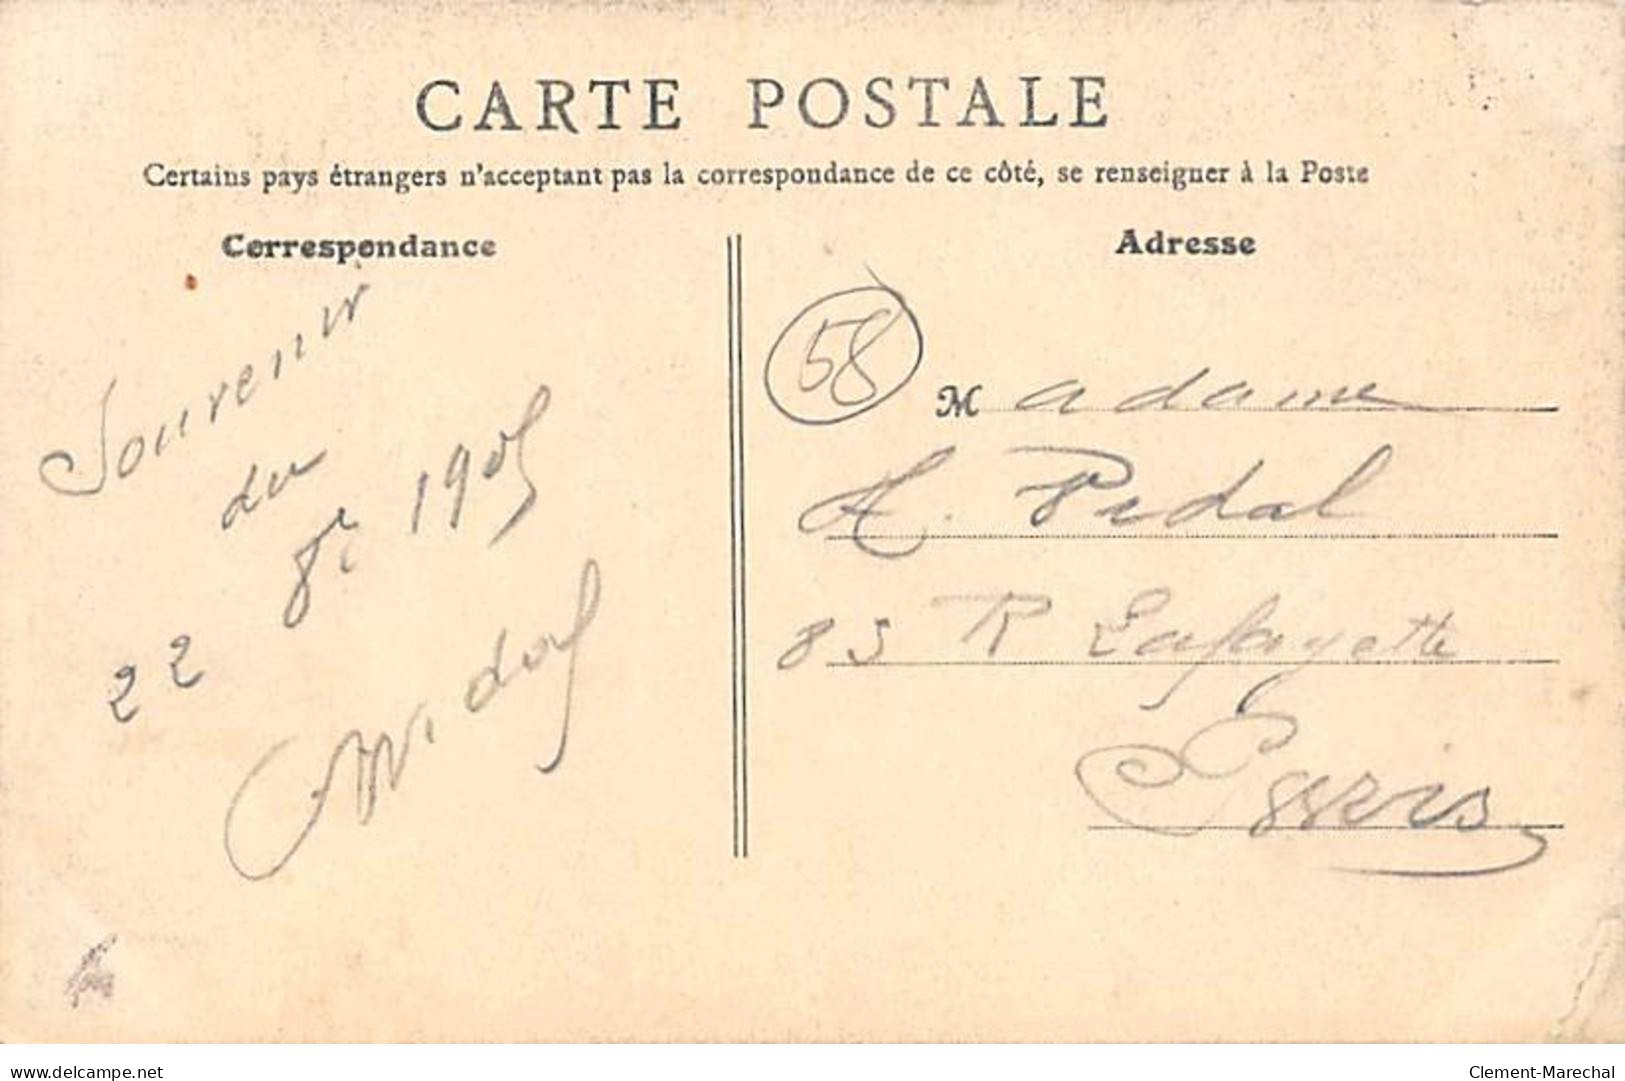 CARTE POSTALE
Certains pays étrangers n'acceptant pas la correspondance de ce côté, se renseigner à la Poste
Correspondance
Souvenir
du
22 8re 1905
Adresse
58
Madame
A. Vidal
83 R Lafayette
Paris
delcampe.net
Clement-Marechal